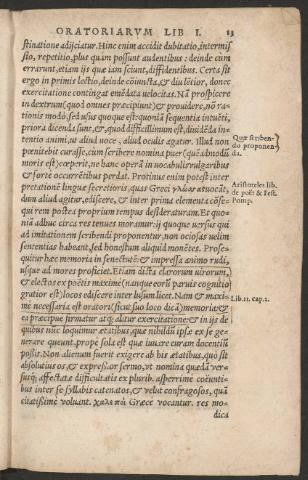 ORATORIARVM LIB I. 13
stinatione adijciatur. Hinc enim accidit dubitatio, intermis
sio, repetitio, plus quàm possunt audentibus: deinde cum
errarunt, etiam ijs quæ iam sciunt, diffidentibus. Certa sit
ergo in primis lectio, deinde coiuncta, & diu lētior, donec
exercitatione contingat emēdata velocitas. Nā prospicere
in dextrum (quod omnes præcipiunt) & prouidere, nō ra-
tionis modò, sed vsus quoque est: quoniā sequentia intuēti,
priora dicenda sunt, &, quod difficillimum est, diuidēda in-
tentio animi, vt aliud voce, aliud oculis agatur. Illud non
pœnitebit curasse, cum scribere nomina puer (quēadmodū
moris est) cœperit, ne hanc operā in vocabulis vulgaribus
& forte occurrētibus perdat. Protinus enim potest inter
pretationē linguæ secretioris, quas Græci γλώσσας vocāt,
dum aliud agitur, ediscere, & inter prima elementa cōse-
qui rem postea proprium tempus desideraturam. Et quo-
niā adhuc circa res tenues moramur: ij quoque versus qui
ad imitationem scribendi proponentur, non ociosas velim
sententias habeant, sed honestum aliquid monētes. Prose-
quitur hæc memoria in senectutē: & impressa animo rudi,
vsque ad mores proficiet. Etiam dicta clarorum virorum,
& electos ex poëtis maximè (nanque eorū paruis cognitio
gratior est) locos ediscere inter lusum licet. Nam & maxi-
mè necessaria est oratori (sicut suo loco dicā) memoria: &
ea præcipuè firmatur atq; alitur exercitatione: & in ijs de
quibus nūc loquimur ætatibus, quæ nihildū ipsæ ex se ge-
nerare queunt, prope sola est quæ iuuare curam docentiū
possit. Non alienum fuerit exigere ab his ætatibus, quò sit
absolutius os, & expressior sermo, vt nomina quædā ver-
susq; affectatæ difficultatis ex plurib. asperrimè coëunti-
bus inter se syllabis catenatos, & velut confragosos, quā
citatissimè voluant. χαλεποὶ Græcè vocantur. res mo-
dica
Quæ scriben-
do proponen-
da.
Aristoteles lib.
de poët. & Fest.
Pomp.
Lib. 11. cap. 2.